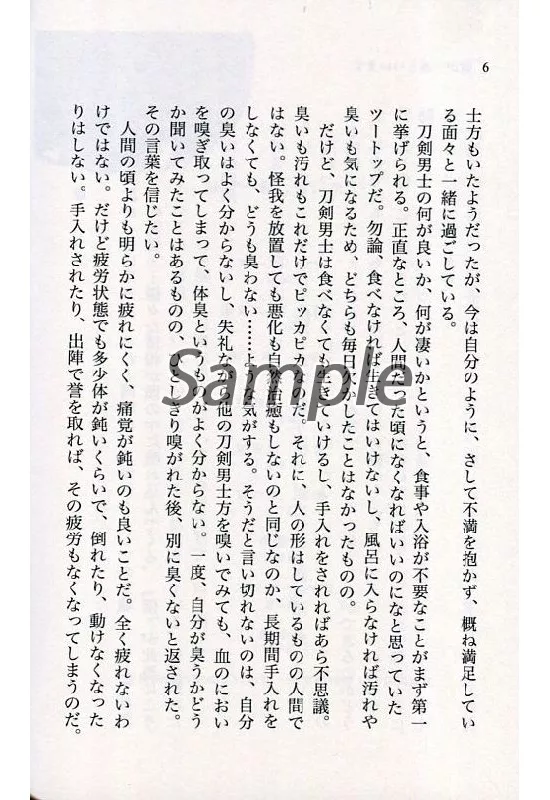 6
士方もいたようだったが、今は自分のように、さして不満を抱かず、概ね満足してい
る面々と一緒に過ごしている。
刀剣男士の何が良いか、何が凄いかというと、食事や入浴が不要なことがまず第一
に挙げられる。正直なところ、人間だった頃になくなればいいのになと思っていた
ツートップだ。勿論、食べなければ生きてはいけないし、風呂に入らなければ汚れや
臭いも気になるため、どちらも毎日欠かしたことはなかったものの。
だけど、刀剣男士は食べなくても生きていけるし、手入れをされればあら不思議。
臭いも汚れもこれだけでピッカピカなのだ。それに、人の形はしているものの人間で
はない。怪我を放置しても悪化も自然治癒もしないのと同じなのか、長期間手入れを
しなくても、どうも臭わない……ような気がする。そうだと言い切れないのは、自分
の臭いはよく分からないし、失礼ながら他の刀剣男士方を嗅いでみても、血のにおい
を嗅ぎ取ってしまって、体臭というものがよく分からない。一度、自分が臭うかどう
か聞いてみたことはあるものの、ひとしきり嗅がれた後、別に臭くないと返された。
その言葉を信じたい。
人間の頃よりも明らかに疲れにくく、痛覚が鈍いのも良いことだ。全く疲れないわ
けではない。だけど疲労状態でも多少体が鈍いくらいで、倒れたり、動けなくなった
りはしない。手入れされたり、出陣で誉を取れば、その疲労もなくなってしまうのだ。
Sample